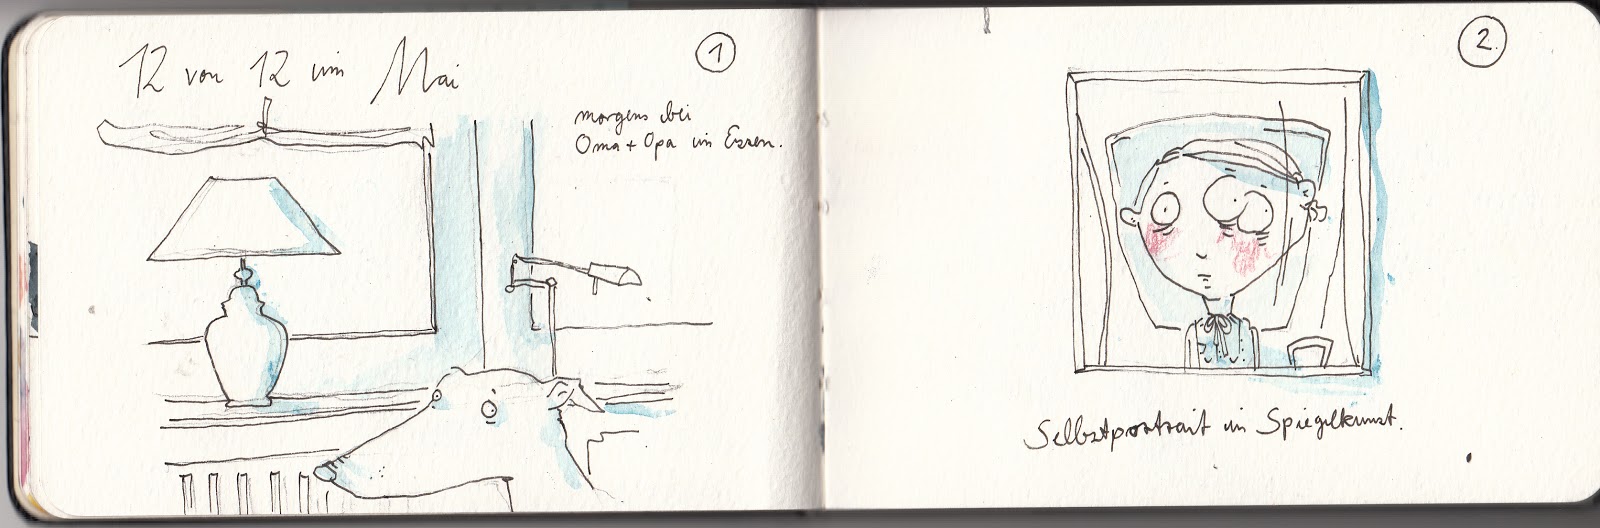 12 von 12 im Mai
1
morgens bei
Oma + Opa in Essen.
2
Selbstportrait in Spiegelkunst.